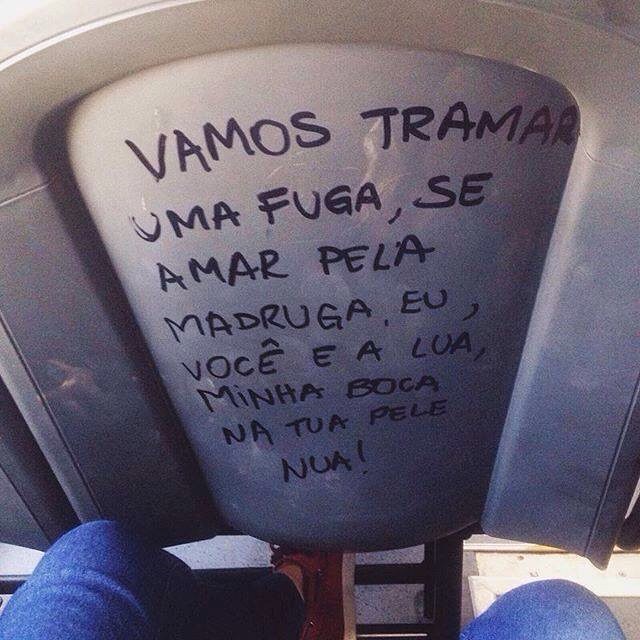 VAMOS TRAMAR
UMA FUGA, SE
AMAR PELA
MADRUGA. EU,
VOCÊ E A LUA,
MINHA BOCA
NA TUA PELE
NUA!